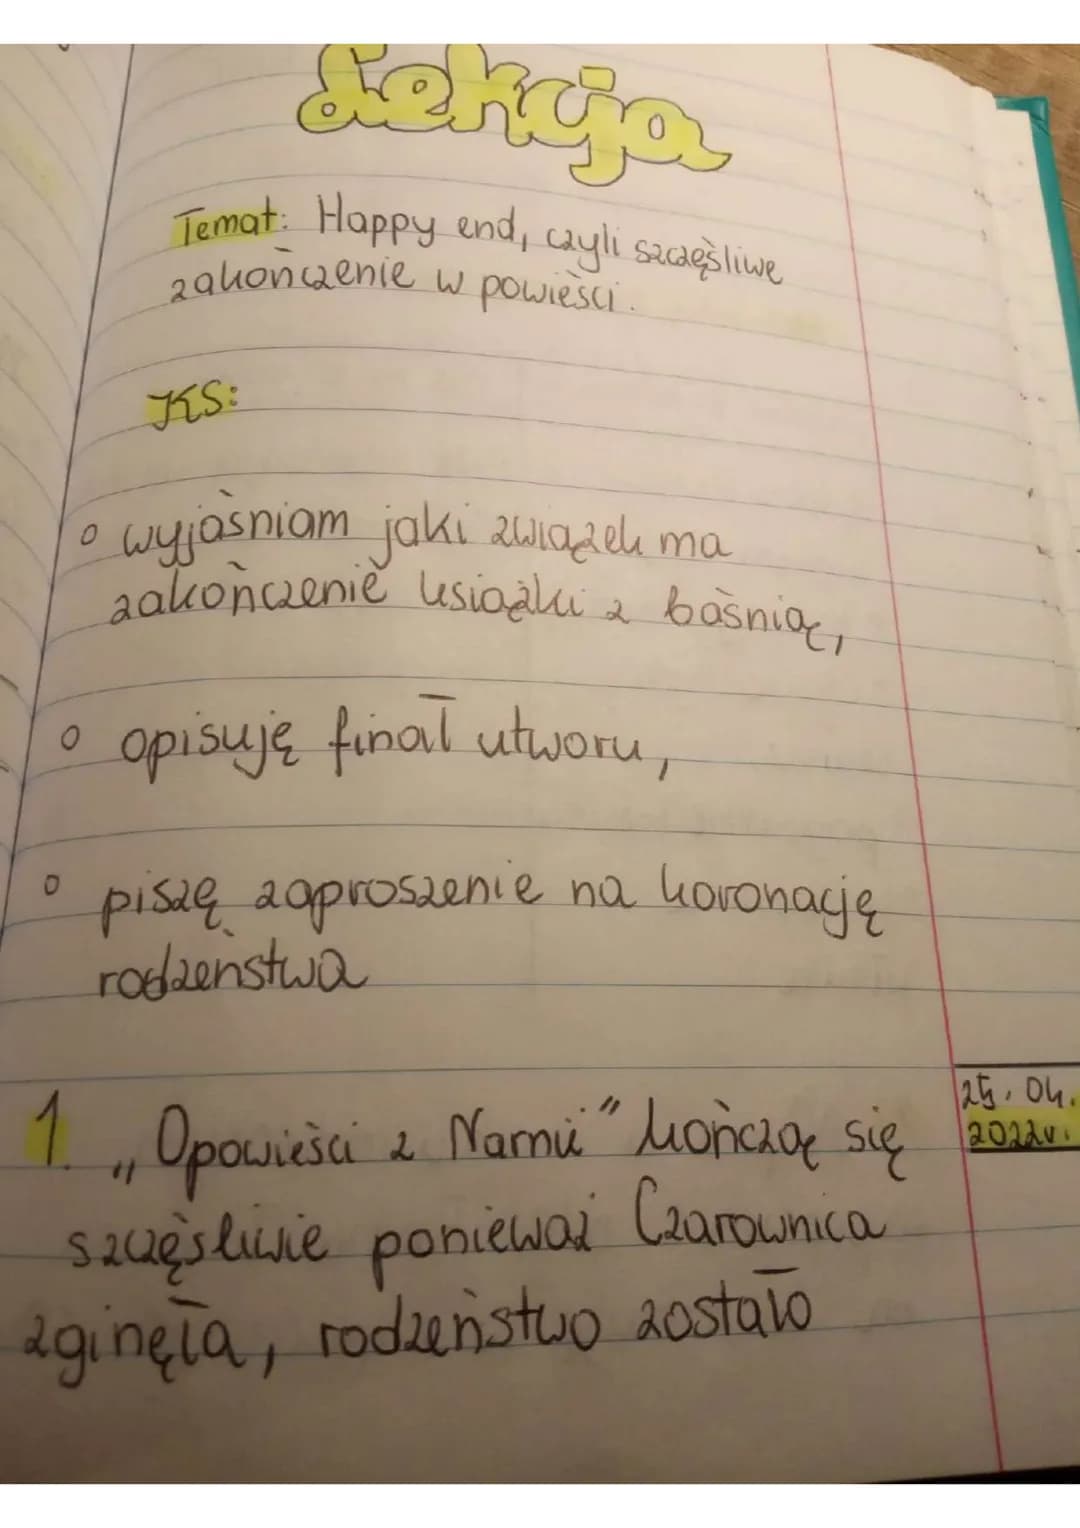 Lekcja
Temat: Happy end, czyli szczęśliwe
zakończenie w powieści.
KS:
wyjaśniam jaki związek ma
zakończenie książki z baśnią,
opisuję finał utworu,
piszę zaproszenie na koronację
rodzeństwa
25.04.
2022r.
1. „Opowieści z Narnii" kończą się
szczęśliwie ponieważ Czarownica
zginęła, rodzeństwo zostało